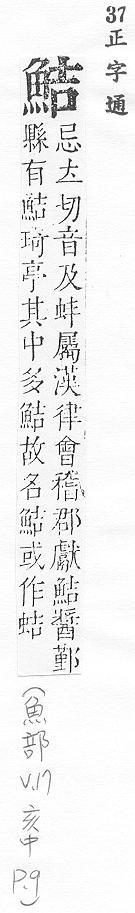 37正字通
鮚忌㐀切音及蚌屬漢律會稽郡獻鮚醬鄞
縣有鮚琦亭其中多鮚故名鮚或作蛣
(魚部
V.17
亥中
P.9)